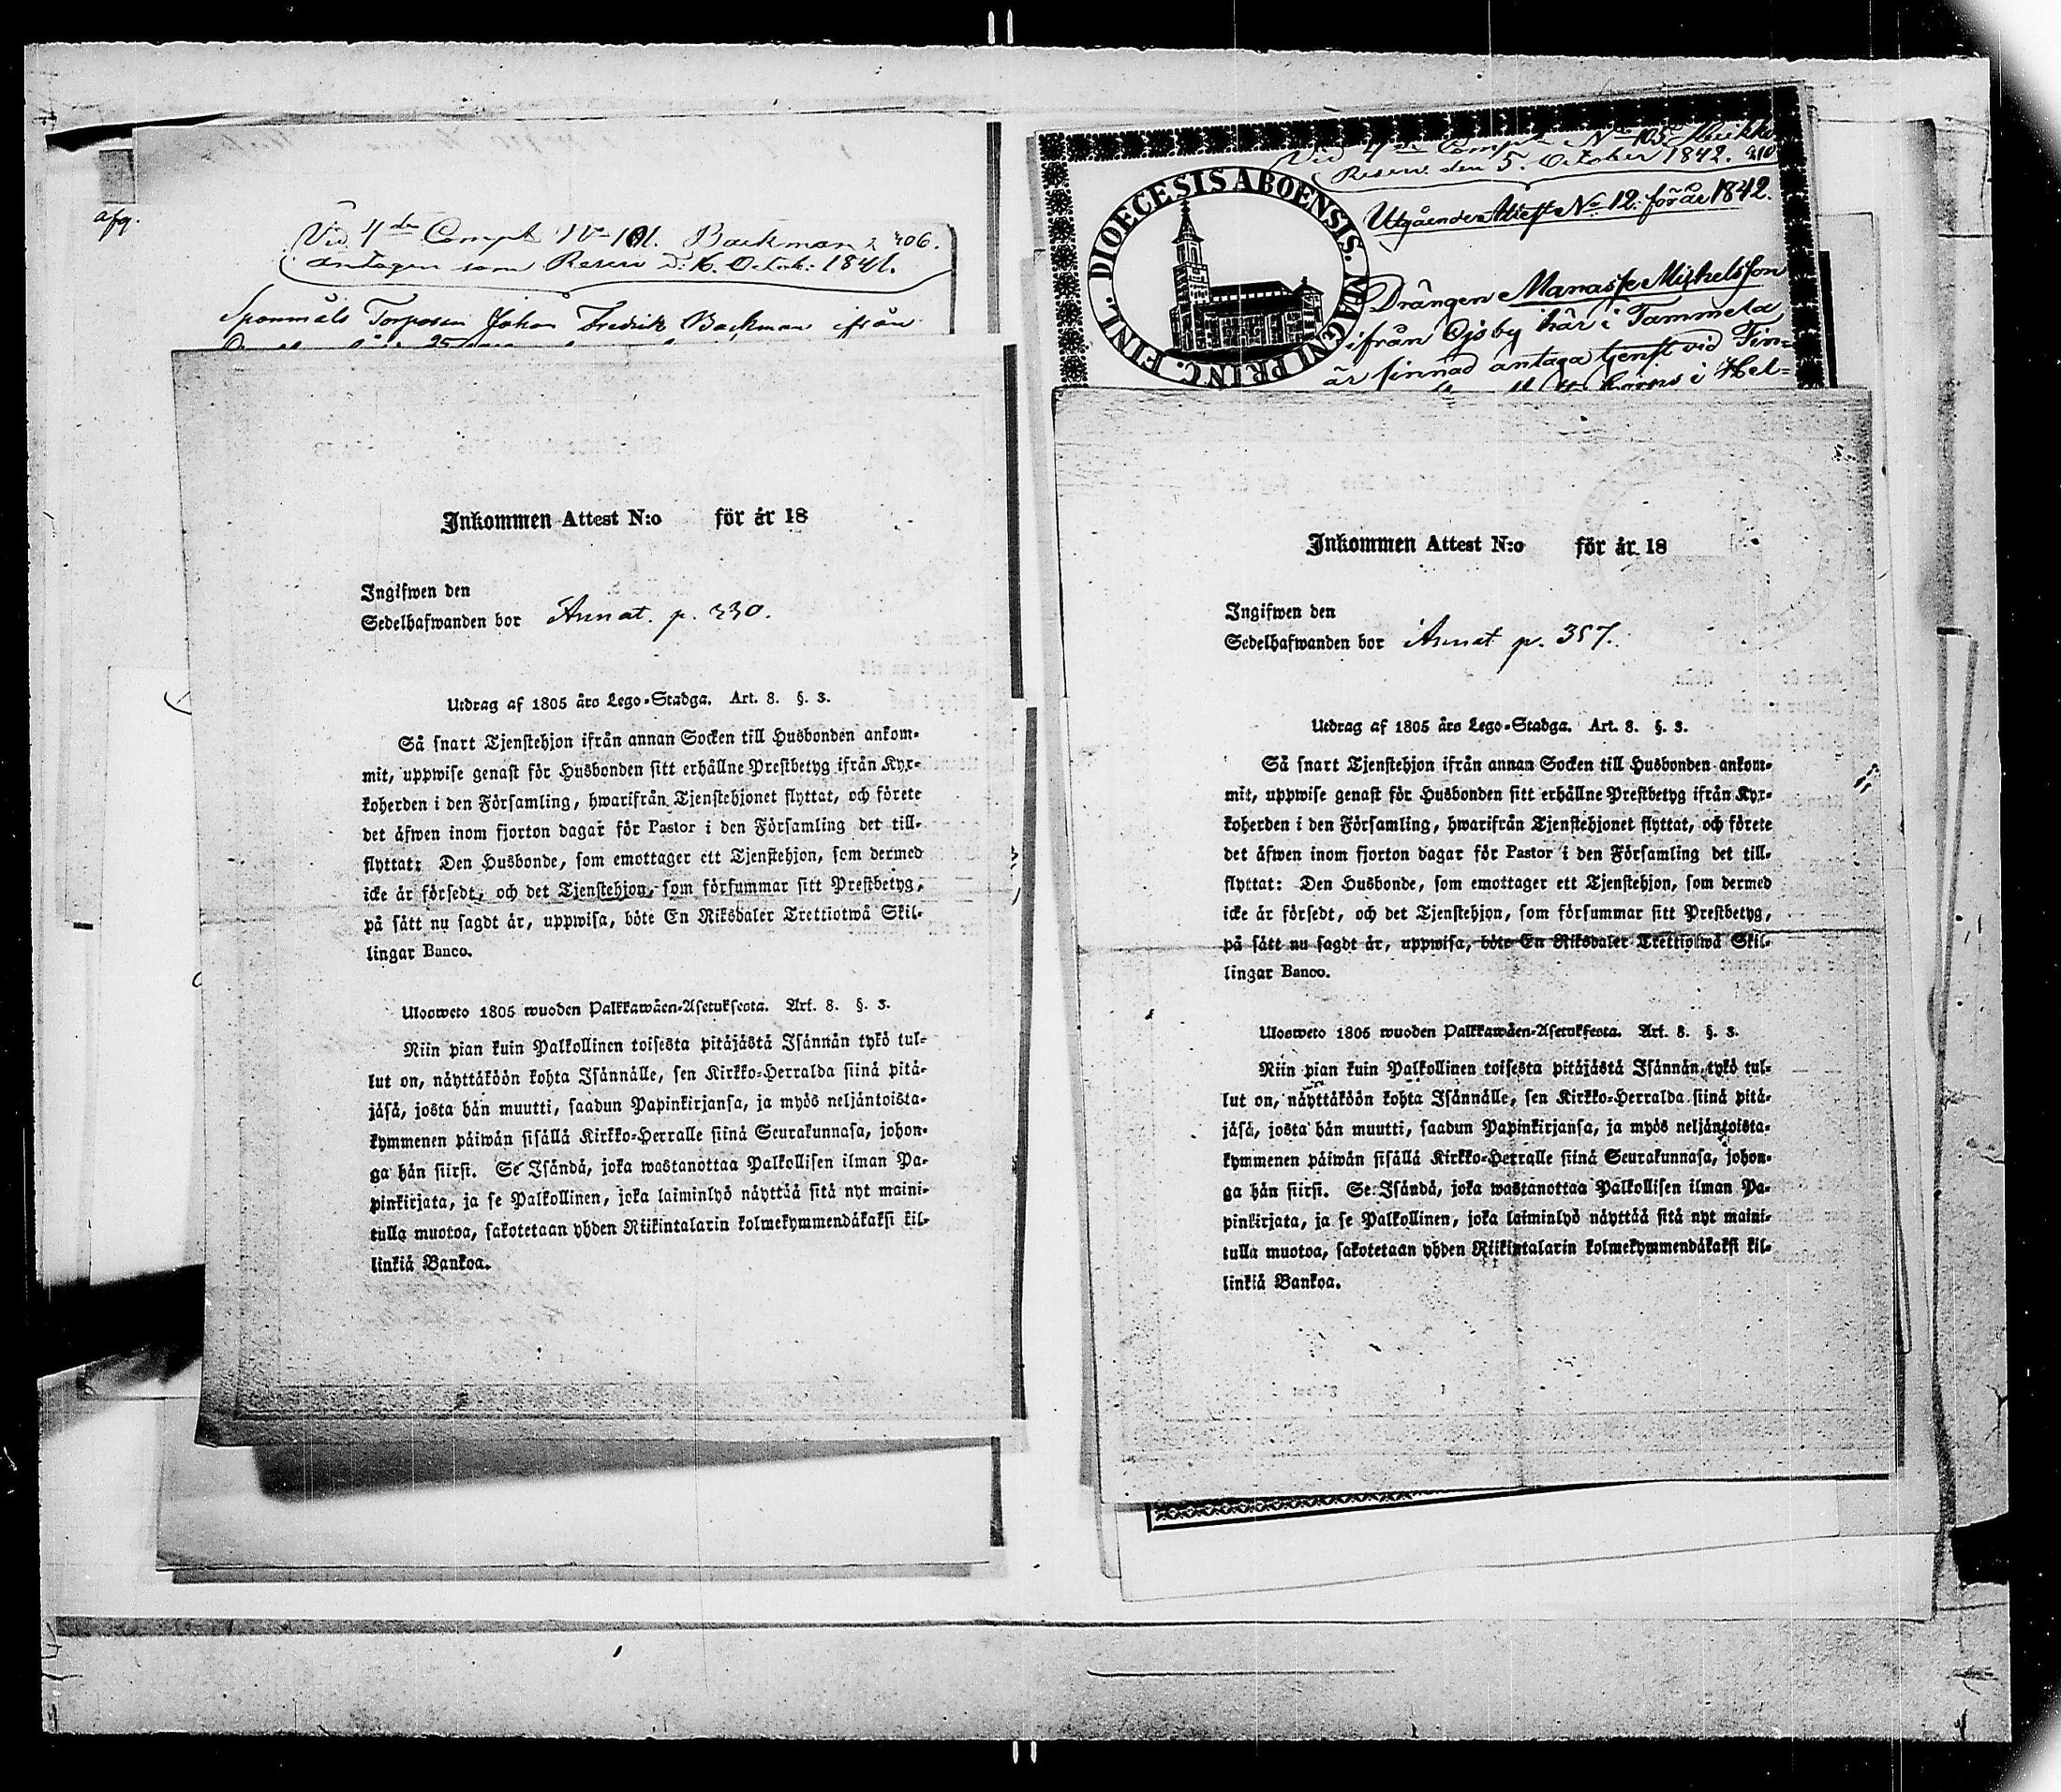 afg.
Vid 4de Comp: No 101. Backman 406.
antagen som Reserv d: 16. Octob: 1841.
Torparen Johan Fredrik Backman ifrån
Inkommen Attest N:o för år 18
Ingifwen den
Sedelhafwanden bor Annat. p. 330.
Utdrag af 1805 års Lego-Stadga. Art. 8. §. 3.
Så snart Tjenstehjon ifrån annan Socken till Husbonden ankom-
mit, uppwise genast för Husbonden sitt erhållne Prestbetyg ifrån Kyr-
koherden i den Församling, hwarifrån Tjenstehjonet flyttat, och förete
det äfwen inom fjorton dagar för Pastor i den Församling det till-
flyttat: Den Husbonde, som emottager ett Tjenstehjon, som dermed
icke är försedt, och det Tjenstehjon, som försummar sitt Prestbetyg,
på sätt nu sagdt är, uppwisa, böte En Riksdaler Trettiotwå Skil-
lingar Banco.
Ulosweto 1805 wuoden Palkkawäen-Asetuksesta. Art. 8. §. 3.
Niin pian kuin Palkollinen toisesta pitäjästä Isännän tykö tul-
lut on, näyttäköön kohta Isännälle, sen Kirkko-Herralda siinä pitä-
jäsä, josta hän muutti, saadun Papinkirjansa, ja myös neljäntoista-
kymmenen päiwän sisällä Kirkko-Herralle siinä Seurakunnasa, johon-
ga hän siirsi. Se Isändä, joka wastanottaa Palkollisen ilman Pa-
pinkirjata, ja se Palkollinen, joka laiminlyö näyttää sitä nyt maini-
tulla muotoa, sakotetaan yhden Riikintalarin kolmekymmendäkaksi kil-
linkiä Bankoa.
Vid 4de Comp: No 105 Mickko
Reserv den 5. October 1842.
DIOECESIS ABOENSIS. MAGNI PRINC. FINL.
Utgående Attest No 12. för år 1842.
Drängen Manasse Michelsson
ifrån Ojsby här i Tammela
är sinnad antaga tjenst vid Fin=
i Hel=
Inkommen Attest N:o för år 18
Ingifwen den
Sedelhafwanden bor Annat p. 357.
Utdrag af 1805 års Lego-Stadga. Art. 8. §. 3.
Så snart Tjenstehjon ifrån annan Socken till Husbonden ankom-
mit, uppwise genast för Husbonden sitt erhållne Prestbetyg ifrån Kyr-
koherden i den Församling, hwarifrån Tjenstehjonet flyttat, och förete
det äfwen inom fjorton dagar för Pastor i den Församling det till-
flyttat: Den Husbonde, som emottager ett Tjenstehjon, som dermed
icke är försedt, och det Tjenstehjon, som försummar sitt Prestbetyg,
på sätt nu sagdt är, uppwisa, böte En Riksdaler Trettiotwå Skil-
lingar Banco.
Ulosweto 1805 wuoden Palkkawäen-Asetuksesta. Art. 8. §. 3.
Niin pian kuin Palkollinen toisesta pitäjästä Isännän tykö tul-
lut on, näyttäköön kohta Isännälle, sen Kirkko-Herralda siinä pitä-
jäsä, josta hän muutti, saadun Papinkirjansa, ja myös neljäntoista-
kymmenen päiwän sisällä Kirkko-Herralle siinä Seurakunnasa, johon-
ga hän siirsi. Se Isändä, joka wastanottaa Palkollisen ilman Pa-
pinkirjata, ja se Palkollinen, joka laiminlyö näyttää sitä nyt maini-
tulla muotoa, sakotetaan yhden Riikintalarin kolmekymmendäkaksi kil-
linkiä Bankoa.